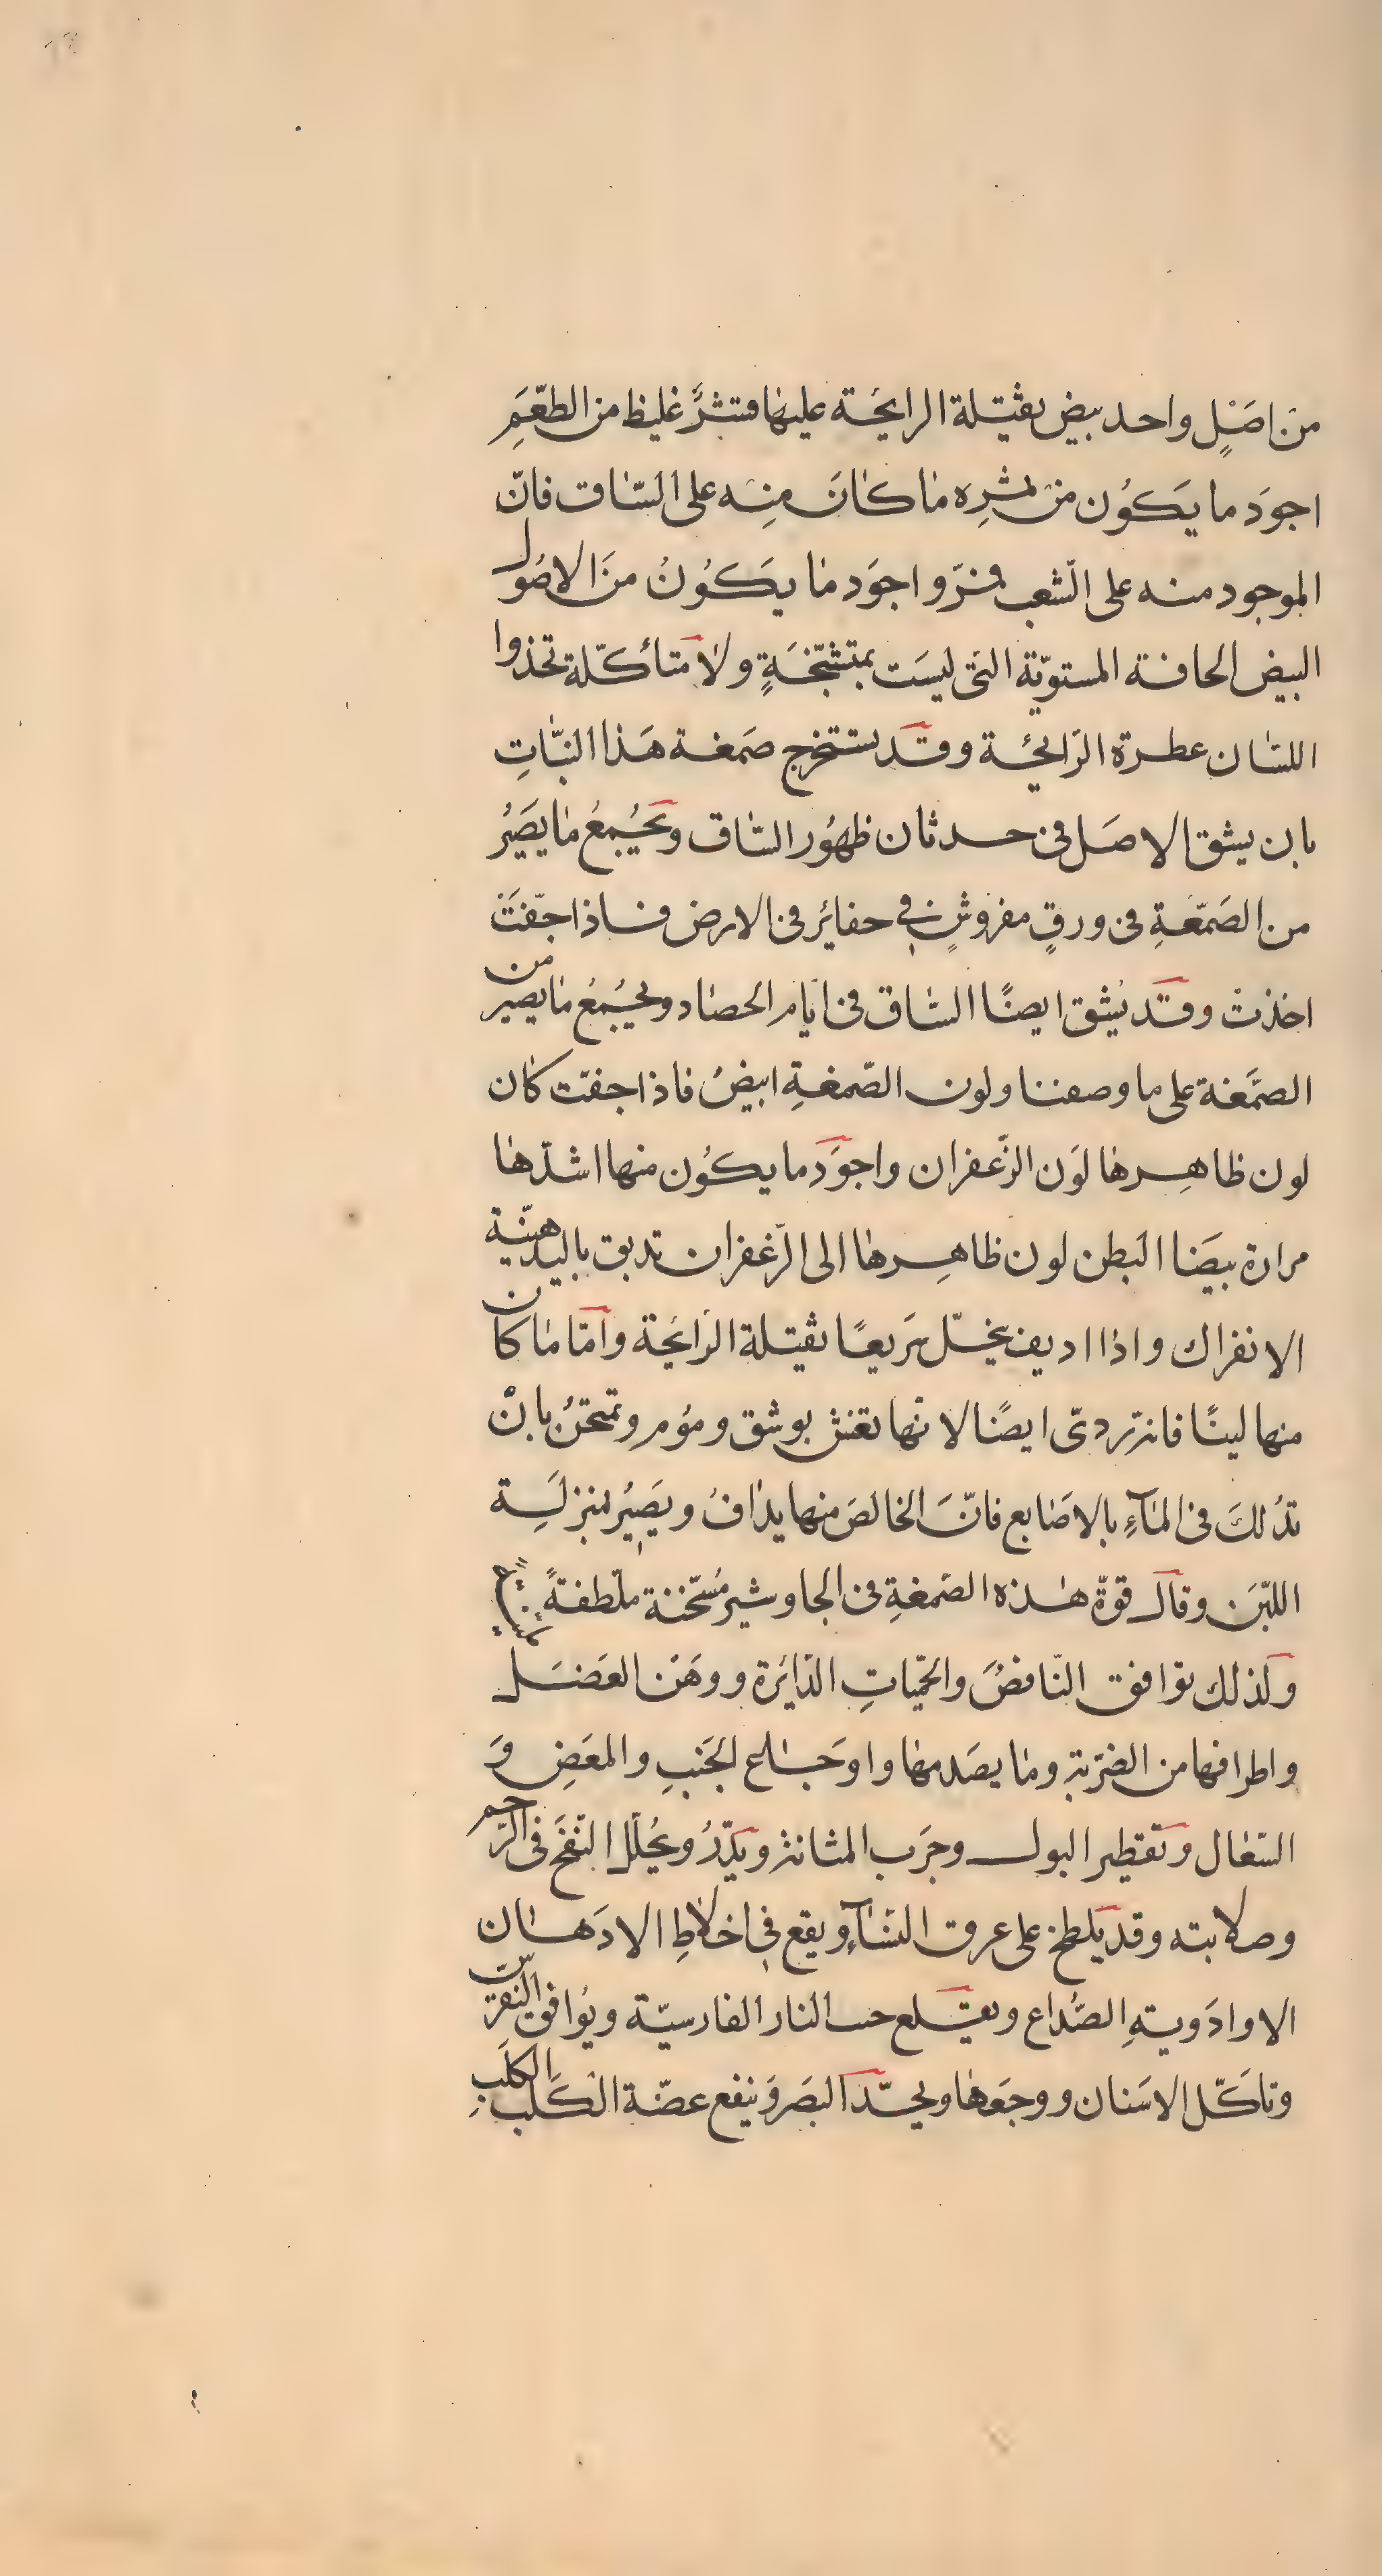 من اصَلٍ واحد بيض ثقيلة الرايحَة عليها قشرٌ غليظ من الطّعَمِ
اجوَد ما يَكوُن من ثمرِه مٰا كٰانَ مِنه على السّاق فانّ
الموجود منه على الشّعب فزّ واجوَد مٰا يَكوُنُ منَ الاصُول
البيض الحافة المستويّة التى ليسَت بمتشنّجَةٍ ولا متأكّلة تحذوا
اللسٰان عطرة الرّايحَة وقد يستخرج صَمغة هَذا النبّاتِ
بان يشق الاصَل فى حدثان ظهُور السّاق ويُجمعُ مٰا يصَيرُ
من الصَمّغَةِ فى ورقٍ مفروشٍ فى حفائر فى الارض فاذا جفّتَ
اخذتْ وقد يُشق ايضًا السّاق فى ايّام الحصٰاد ويُجمعُ مٰا يصير من
الصمَّغة على ما وصفنا ولون الصّمغةِ ابيضُ فاذا جفّت كان
لون ظاهِرهٰا لوَن الزّعفران واجوَد ما يكوُن منها اشدّهٰا
مرارة بيضَا البطن لون ظاهِرهٰا الى الزّعفران تدبق باليد هيّنة
الانفراك واذا اديف يخّل سَريعًا ثقيلة الرّائحة وامّا مٰا كان
منها لينًا فانه ردىّ ايضًا لانّها تغش بوشق وموُم وتمتحنُ بانّ
تدُلكَ فى المٰآءِ بالاصَابع فانّ الخالصَ منها يدٰافُ ويَصيُر بمنزلَة
اللبّنَ وقال قوّة هٰذه الصّمغةِ فى الجاوشير مُسّخنة ملّطفةً
ولذلك توافق النّافضَ والحمّياتِ الدّايَرة ووهَن العَضَل
واطرافها من الضرّبة ومٰا يصَدمهٰا واوجٰاع الجَنبِ والمعَضِ وَ
السّعٰال وتقتطير البول وجَرَب المثانة ويدّرُ ويُحلّل النّفخَ فى الرّحم
وصلابته وقد يلطخ على عرق النسَٰآءِ ويقع فى اخلاٰطِ الادَهٰان
الا وادَويةِ الصُّداع ويقلع حب النار الفارسيّة ويُوافق النقرّس
وتاكّل الاسَنان ووجَعهٰا ويحدّ البصَر وَينفع عضّة الكَلب الكلَبِ